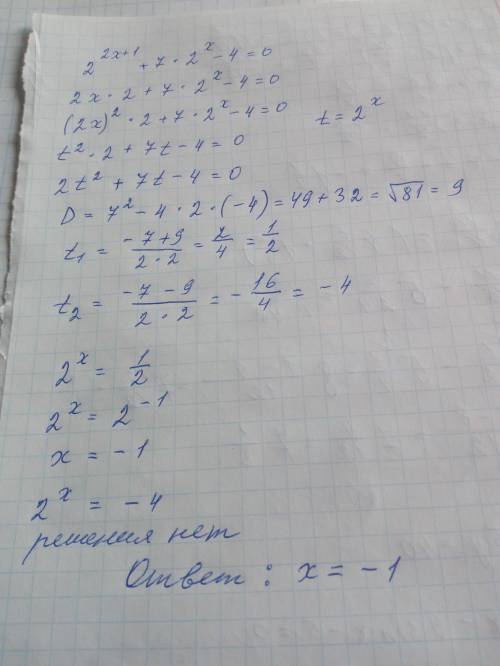 2^{2x+1} + 7 · 2^x - 4 = 0
2x · 2 + 7 · 2^x - 4 = 0
(2x)^2 · 2 + 7 · 2^x - 4 = 0 t = 2^x
t^2 · 2 + 7t - 4 = 0
2t^2 + 7t - 4 = 0
D = 7^2 - 4 · 2 · (-4) = 49 + 32 = √81 = 9
t_1 = (-7+9)/(2·2) = 2/4 = 1/2
t_2 = (-7-9)/(2·2) = -16/4 = -4
2^x = 1/2
2^x = 2^{-1}
x = -1
2^x = -4
решения нет
Ответ: x = -1